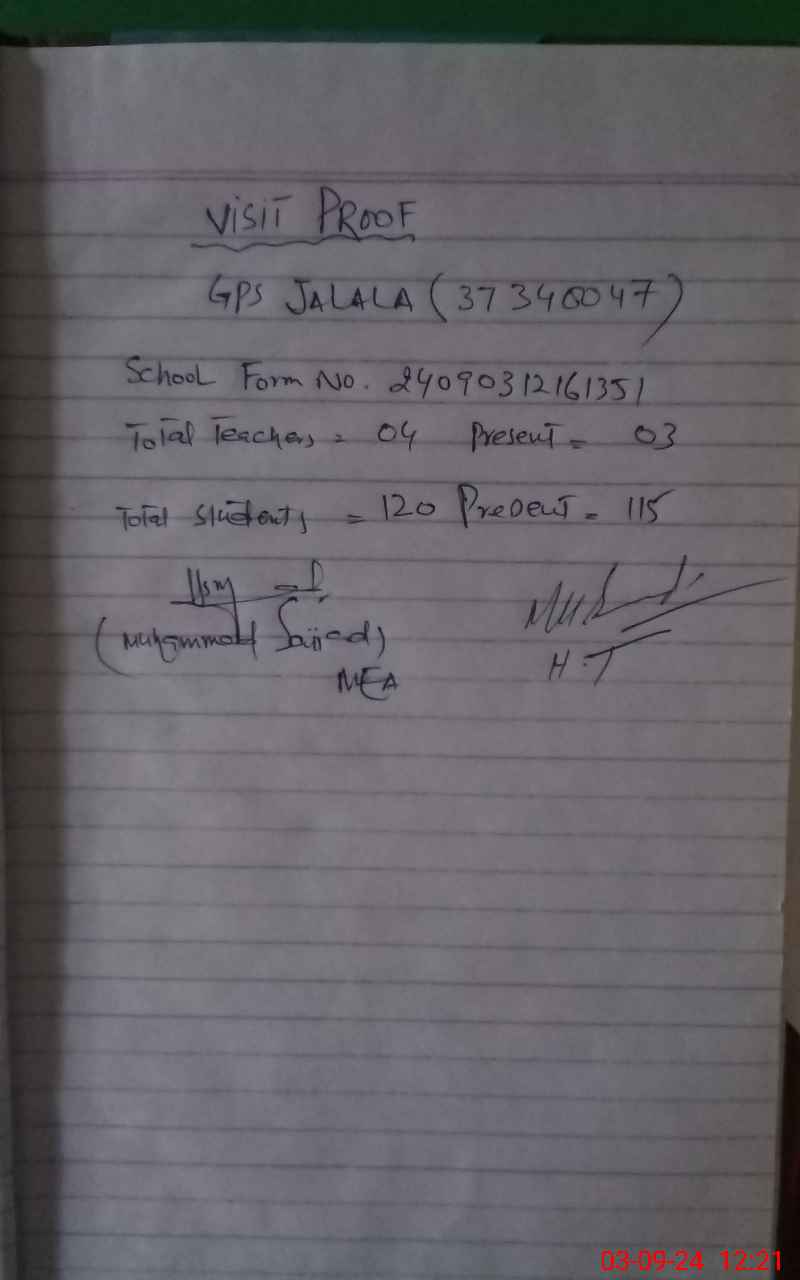 VISIT PROOF
GPS JALALA (37340047)
School Form No. 24090312161351
Total Teachers = 04 Present = 03
Total Students = 120 Present = 115
(Muhammad Sajjad)
MEA
H.T
03-09-24 12:21